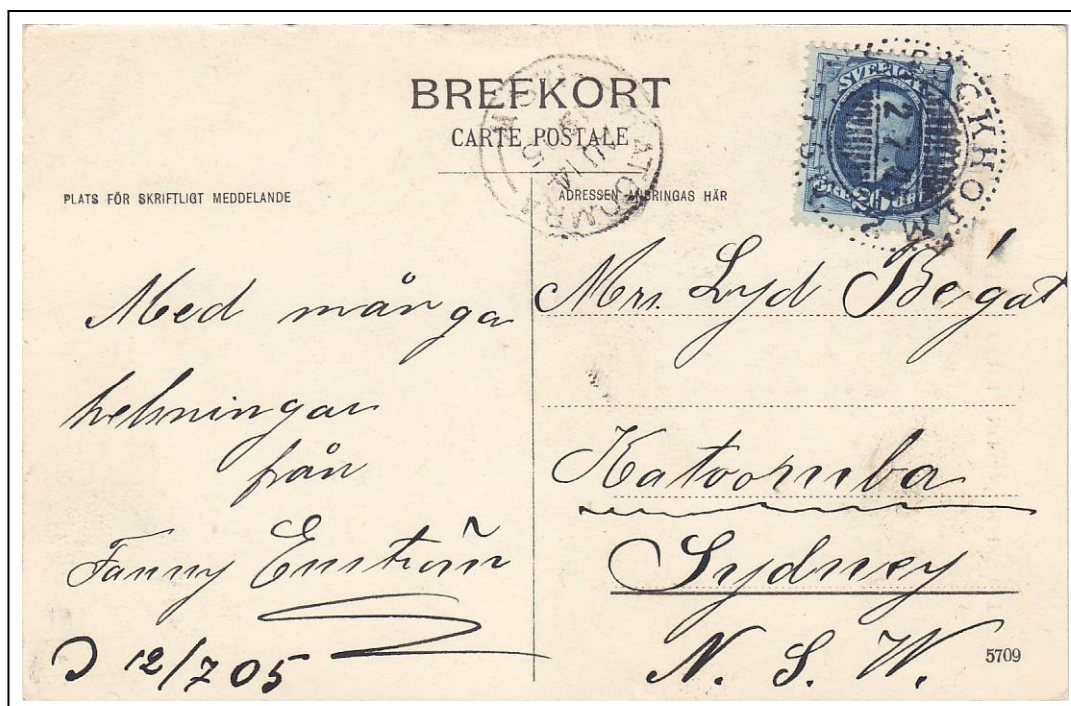 BREFKORT
CARTE POSTALE
PLATS FÖR SKRIFTLIGT MEDDELANDE
ADRESSEN ANBRINGAS HÄR
SVERIGE
20
STOCKHOLM
2.7.
KATOOMBA
AU 14
05
N.S.W
Med många
helsningar
från
Fanny Enström
D 12/7 05
Mrs. Lyd Bégat
Katoomba
Sydney
N. S. W.
5709